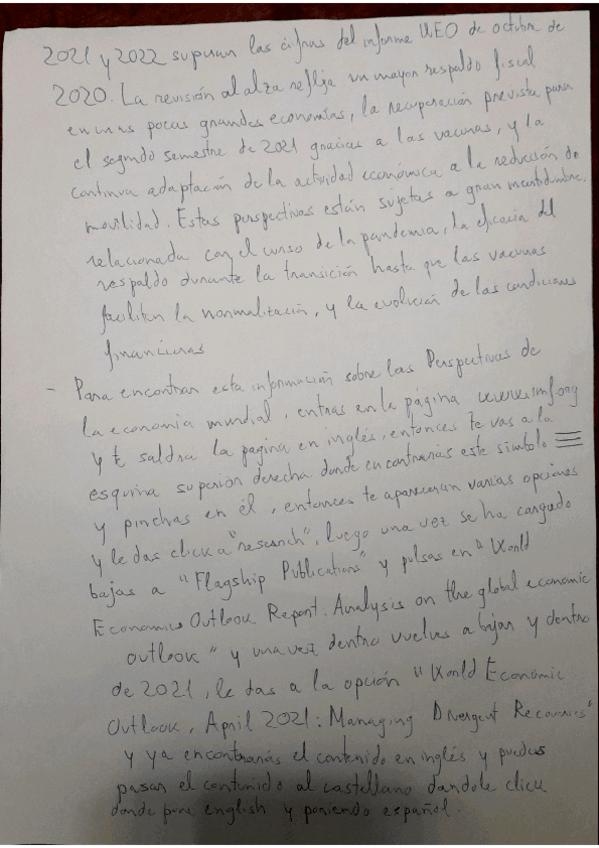 2021 y 2022 superan las cifras del informe WEO de octubre de
2020. La revisión al alza refleja un mayor respaldo fiscal
en unas pocas grandes economías, la recuperación prevista para
el segundo semestre de 2021 gracias a las vacunas, y la
continua adaptación de la actividad económica a la reducción de
movilidad. Estas perspectivas están sujetas a gran incertidumbre,
relacionada con el curso de la pandemia, la eficacia del
respaldo durante la transición hasta que las vacunas
faciliten la normalización, y la evolución de las condiciones
financieras
- Para encontrar esta información sobre las Perspectivas de
la economía mundial, entras en la página www.imf.org
y te saldrá la pagina en inglés, entonces te vas a la
esquina superior derecha donde encontrarás este símbolo ≡
y pinchas en él, entonces te aparecerán varias opciones
y le das click a "research", luego una vez se ha cargado
bajas a "Flagship Publications" y pulsas en "World
Economics Outlook Report. Analysis on the global economic
outlook" y una vez dentro vuelves a bajar y dentro
de 2021, le das a la opción "World Economic
Outlook, April 2021: Managing Divergent Recoveries"
y ya encontrarás el contenido en inglés y puedes
pasar el contenido al castellano dandole click
donde pone english y poniendo español.